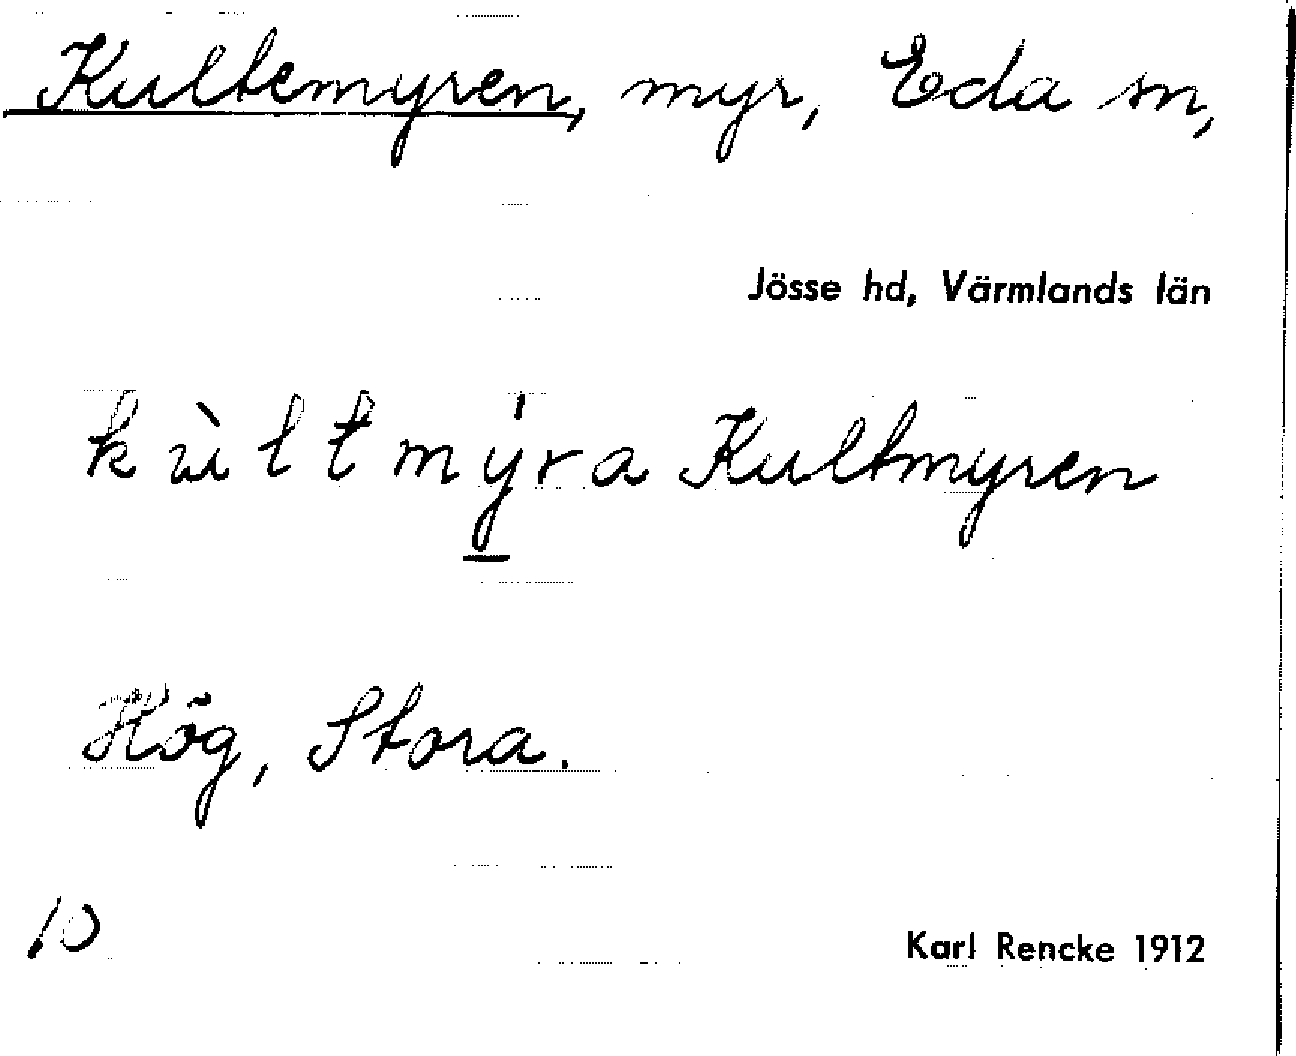 Kultemyren, myr, Eda sn,
Jösse hd, Värmlands län
kùltmý̱ra Kultmyren
Hög, Stora.
10
Karl Rencke 1912